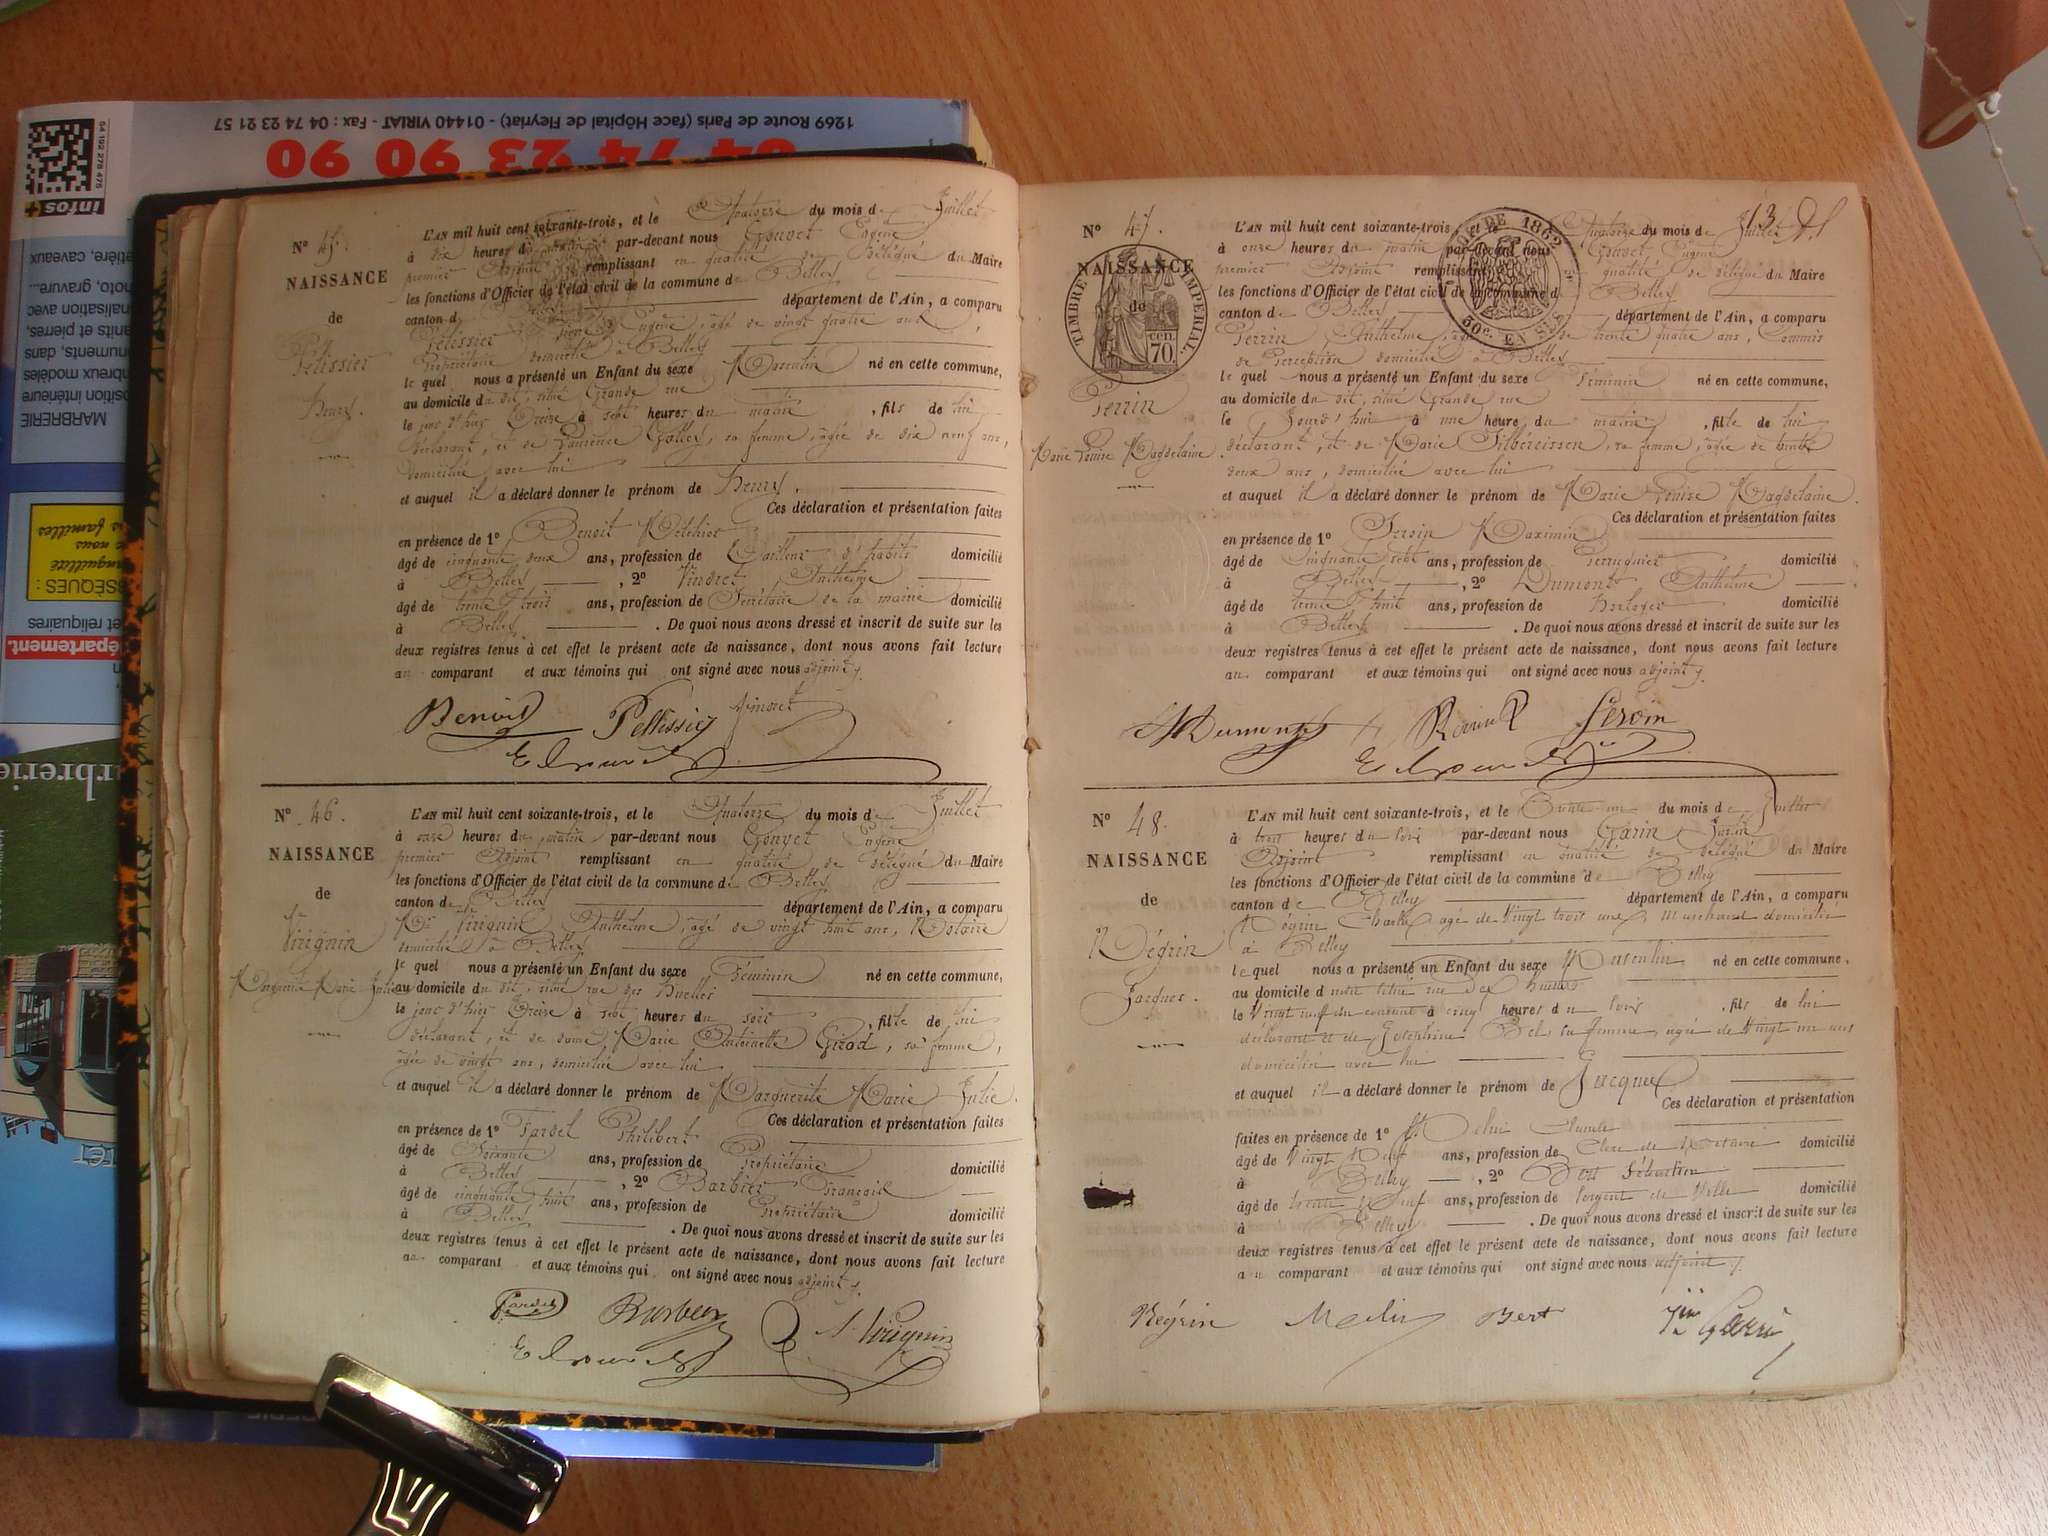 1269 Route de Paris (face Hôpital de Fleyriat) - 01440 VIRIAT - Fax : 04 74 23 21 57
04 74 23 90 90
54 192 278 475
infos+
N° 45.
NAISSANCE
de
Pélissier
Henry.
L'AN mil huit cent soixante-trois, et le Quatorze du mois de Juillet
à dix heures du matin par-devant nous Gouvet Eugène
premier Adjoint remplissant en qualité de délégué du Maire
les fonctions d'Officier de l'état civil de la commune de Belley
canton de département de l'Ain, a comparu
Pélissier Eugène, âgé de vingt quatre ans,
Propriétaire domicilié à Belley
le quel nous a présenté un Enfant du sexe Masculin né en cette commune,
au domicile du dit, situé Grande rue
le jour d'hier Treize à sept heures du matin, fils de lui
déclarant, et de Laurence Galley, sa femme, âgée de dix neuf ans,
domiciliée avec lui
et auquel il a déclaré donner le prénom de Henry.
Ces déclaration et présentation faites
en présence de 1° Benoit Melchior
âgé de cinquante deux ans, profession de Tailleur d'habits domicilié
à Belley, 2° Vindret Anthelme
âgé de trente trois ans, profession de Secrétaire de la mairie domicilié
à Belley. De quoi nous avons dressé et inscrit de suite sur les
deux registres tenus à cet effet le présent acte de naissance, dont nous avons fait lecture
au comparant et aux témoins qui ont signé avec nous adjoint.
Benoit Pellissier Vindret
N° 46.
NAISSANCE
de
Virignin
Marguerite Marie Julie
L'AN mil huit cent soixante-trois, et le Quatorze du mois de Juillet
à onze heures du matin par-devant nous Gouvet Eugène
premier Adjoint remplissant en qualité de délégué du Maire
les fonctions d'Officier de l'état civil de la commune de Belley
canton de Belley département de l'Ain, a comparu
Mr Virignin Anthelme, âgé de vingt huit ans, Notaire
domicilié à Belley
le quel nous a présenté un Enfant du sexe Féminin né en cette commune,
au domicile du dit, situé rue des
le jour d'hier Treize à sept heures du soir, fille de lui
déclarant, et de dame Marie Antoinette Girod, sa femme,
âgée de vingt ans, domiciliée avec lui
et auquel il a déclaré donner le prénom de Marguerite Marie Julie.
Ces déclaration et présentation faites
en présence de 1° Tardel Philibert
âgé de Soixante ans, profession de Propriétaire domicilié
à Belley, 2° Barbier François
âgé de cinquante huit ans, profession de Propriétaire domicilié
à Belley. De quoi nous avons dressé et inscrit de suite sur les
deux registres tenus à cet effet le présent acte de naissance, dont nous avons fait lecture
au comparant et aux témoins qui ont signé avec nous adjoint.
A. Virignin
13
N° 47.
NAISSANCE
de
TIMBRE IMPERIAL.
CEN. 70.
1862
50c. EN SUS
Perrin
Marie Louise Magdelaine.
L'AN mil huit cent soixante-trois, et le Quatorze du mois de Juillet
à onze heures du matin par-devant nous Gouvet Eugène
premier Adjoint remplissant en qualité de délégué du Maire
les fonctions d'Officier de l'état civil de la commune de Belley
canton de Belley département de l'Ain, a comparu
Perrin Anthelme, âgé de trente quatre ans, Commis
de Perception domicilié à Belley
le quel nous a présenté un Enfant du sexe Féminin né en cette commune,
au domicile du dit, situé Grande rue
le Jourd'hui à une heure du matin, fille de lui
déclarant, et de Marie Silbereissen, sa femme, âgée de trente
deux ans, domiciliée avec lui
et auquel il a déclaré donner le prénom de Marie Louise Magdelaine.
Ces déclaration et présentation faites
en présence de 1° Maximin
âgé de Cinquante sept ans, profession de Perruquier domicilié
à Belley, 2° Dumont Anthelme
âgé de trente huit ans, profession de Horloger domicilié
à Belley. De quoi nous avons dressé et inscrit de suite sur les
deux registres tenus à cet effet le présent acte de naissance, dont nous avons fait lecture
au comparant et aux témoins qui ont signé avec nous adjoint.
N° 48.
NAISSANCE
de
Négrin
Jacques.
L'AN mil huit cent soixante-trois, et le Trente un du mois de Juillet
à trois heures du soir par-devant nous Garin
Adjoint remplissant en qualité de délégué du Maire
les fonctions d'Officier de l'état civil de la commune de Belley
canton de Belley département de l'Ain, a comparu
Négrin Charles âgé de Vingt trois ans, Marchand domicilié
à Belley
le quel nous a présenté un Enfant du sexe Masculin né en cette commune,
au domicile
le Vingt neuf du courant à cinq heures du soir, fils de lui
déclarant et de Joséphine Bel sa femme, âgée de Vingt un ans
domiciliée avec lui
et auquel il a déclaré donner le prénom de Jacques
Ces déclaration et présentation
faites en présence de 1° Claude
âgé de Vingt Neuf ans, profession de Clerc de Notaire domicilié
à Belley, 2° Bert Sébastien
âgé de trente Neuf ans, profession de Sergent de Ville domicilié
à Belley. De quoi nous avons dressé et inscrit de suite sur les
deux registres tenus à cet effet le présent acte de naissance, dont nous avons fait lecture
au comparant et aux témoins qui ont signé avec nous adjoint.
Négrin Bert